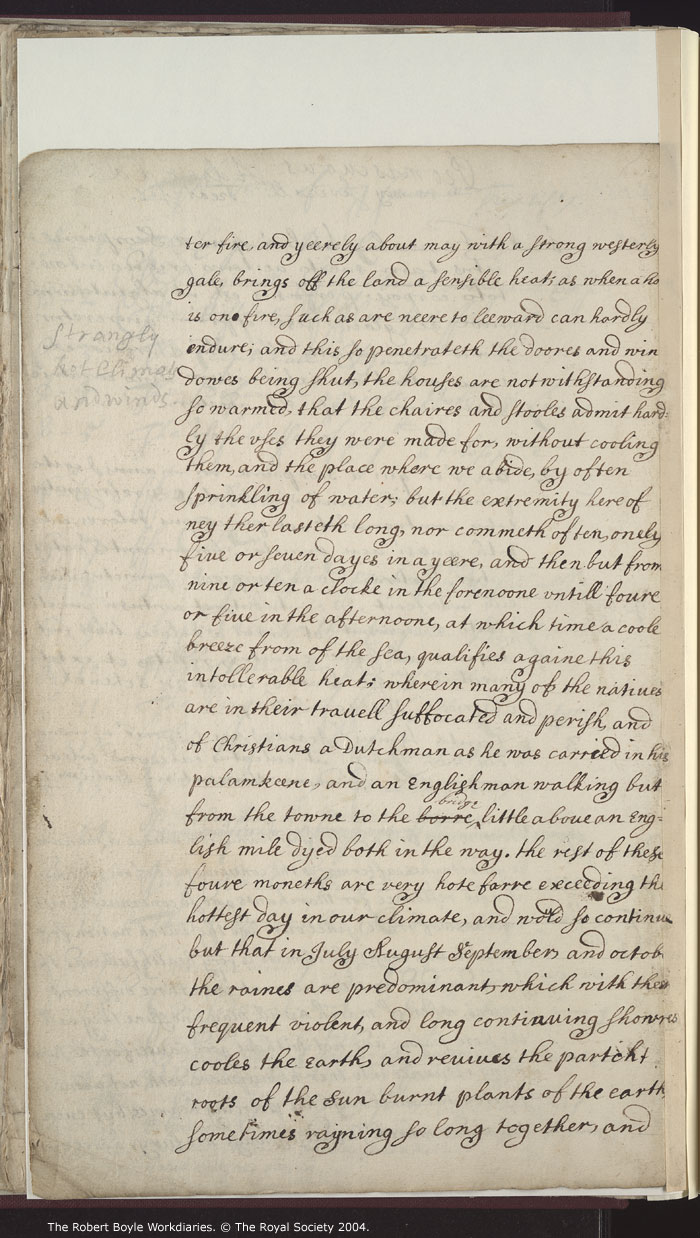 ter fire, and yeerely about may with a strong westerly
gale, brings off the land a sensible heat; as when a ho
is one fire, such as are neere to leeward can hardly
endure; and this so penetrateth the doores and win
dowes being shut, the houses are notwithstanding
so warmed, that the chaires and stooles admit hard:
ly the vses they were made for, without cooling
them, and the place where we abide, by often
sprinkling of water; but the extremity hereof
neyther lasteth long, nor commeth often, onely
five or seven dayes in a yeere, and then but from
nine or ten a clocke in the forenoone vntill foure
or five in the afternoone, at which time a coole
breeze from of the sea, qualifies againe this
intollerable heat; wherein many of the natives
are in their travell suffocated and perish, and
of Christians a Dutchman as he was carried in his
palamkeene, and an Englishman walking but
bridge
from the towne to the borre, little above an Eng=
lish mile dyed both in the way. the rest of these
foure moneths are very hote farre exceeding the
hottest day in our climate, and wold so continue
but that in July August September, and octob
the raines are predominant, which with their
frequent violent, and long continuing showres
cooles the earth, and revives the partcht
roots of the sun burnt plants of the earth
sometimes rayning so long together, and
Strangly
hot Climat
and winds.
The Robert Boyle Workdiaries. © The Royal Society 2004.